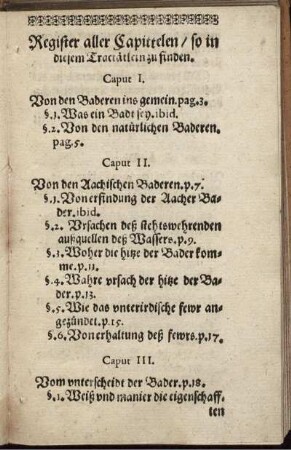 Register aller Capittelen/ so in
diesem Tractätlein zu finden.
Caput I.
Von den Baderen ins gemein. pag. 3.
§. 1. Was ein Badt sey. ibid.
§. 2. Von den natürlichen Baderen.
pag. 5.
Caput II.
Von den Aachischen Baderen. p. 7.
§. 1. Von erfindung der Aacher Ba-
der. ibid.
§. 2. Vrsachen deß stehtswehrenden
außquellen deß Wassers. p. 9.
§. 1. Woher die hitze der Bader kom-
me. p. 11.
§. 4. Wahre vrsach der hitze der Ba-
der. p. 13.
§. 5. Wie das vnterirdische fewr an-
gezündet. p. 15.
§. 6. Von erhaltung deß fewrs. p. 17.
Caput III.
Vom vnterscheidt der Bader. p. 18.
§. 1. Weiß vnd manier die eigenschaff-
ten